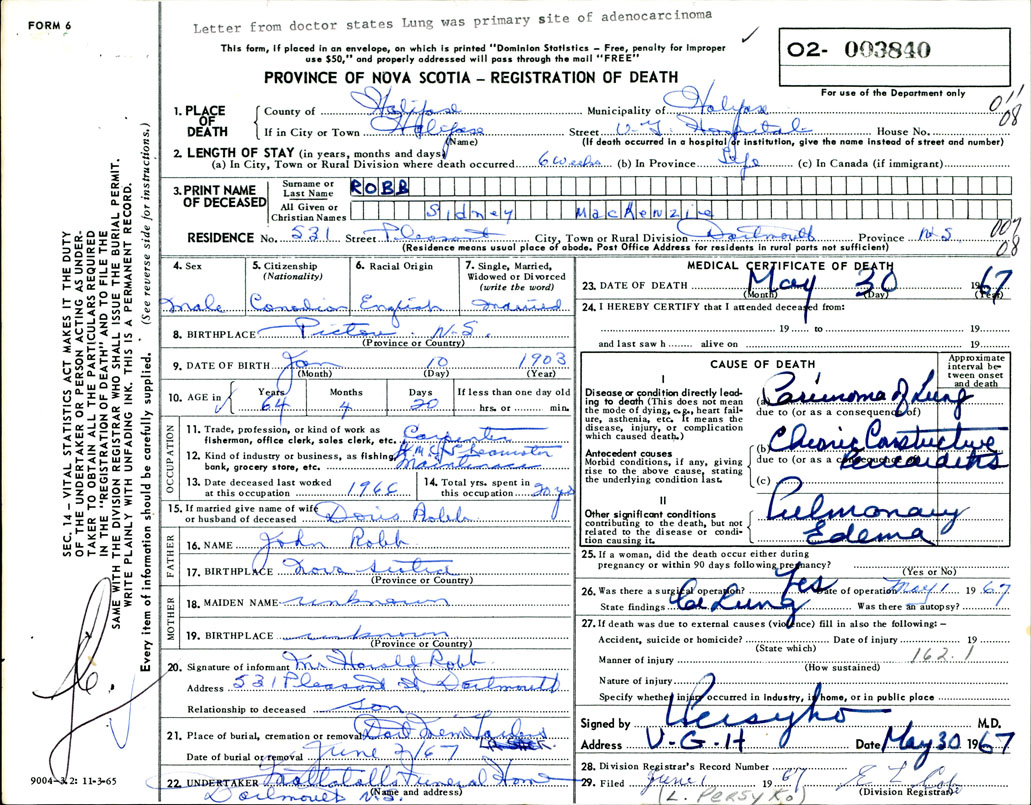 FORM 6
Letter from doctor states Lung was primary site of adenocarcinoma
This form, if placed in an envelope, on which is printed "Dominion Statistics – Free, penalty for improper
use $50," and properly addressed will pass through the mail "FREE"
O2- 003840
For use of the Department only
PROVINCE OF NOVA SCOTIA – REGISTRATION OF DEATH
011
08
1. PLACE OF DEATH
County of Halifax Municipality of Halifax
If in City or Town Halifax Street V.G. Hospital House No.
(Name) (If death occurred in a hospital or institution, give the name instead of street and number)
2. LENGTH OF STAY (in years, months and days)
(a) In City, Town or Rural Division where death occurred 6 weeks (b) In Province Life (c) In Canada (if immigrant)
3. PRINT NAME OF DECEASED
Surname or Last Name ROBB
All Given or Christian Names Sidney MacKenzie
RESIDENCE No. 531 Street Pleasant City, Town or Rural Division Dartmouth Province N.S.
(Residence means usual place of abode. Post Office Address for residents in rural parts not sufficient)
007
08
4. Sex
Male
5. Citizenship
(Nationality)
Canadian
6. Racial Origin
English
7. Single, Married,
Widowed or Divorced
(write the word)
Married
8. BIRTHPLACE Pictou N.S.
(Province or Country)
9. DATE OF BIRTH Jan 10 1903
(Month) (Day) (Year)
10. AGE in Years Months Days If less than one day old
64 4 20 hrs. or min.
OCCUPATION
11. Trade, profession, or kind of work as
fisherman, office clerk, sales clerk, etc. Carpenter
12. Kind of industry or business, as fishing,
bank, grocery store, etc.
13. Date deceased last worked
at this occupation 1966
14. Total yrs. spent in
this occupation 20 yrs
15. If married give name of wife
or husband of deceased Doris Robb
FATHER
16. NAME John Robb
17. BIRTHPLACE Nova Scotia
(Province or Country)
MOTHER
18. MAIDEN NAME unknown
19. BIRTHPLACE unknown
(Province or Country)
20. Signature of informant Mr Harold Robb
Address 531 Pleasant St. Dartmouth
Relationship to deceased son
21. Place of burial, cremation or removal Dart Mem Gardens
Date of burial or removal June 2/67
22. UNDERTAKER Funeral Home
(Name and address)
Dartmouth N.S.
MEDICAL CERTIFICATE OF DEATH
23. DATE OF DEATH May 30 1967
(Month) (Day) (Year)
24. I HEREBY CERTIFY that I attended deceased from:
19 to 19
and last saw h alive on 19
CAUSE OF DEATH
Approximate interval between onset and death
I
Disease or condition directly lead-
ing to death (This does not mean
the mode of dying, e.g., heart fail-
ure, asthenia, etc. It means the
disease, injury, or complication
which caused death.)
(a) Carcinoma of Lung
due to (or as a consequence of)
Antecedent causes
Morbid conditions, if any, giving
rise to the above cause, stating
the underlying condition last.
(b) Chronic Constrictive
Pericarditis
due to (or as a consequence of)
(c)
II
Other significant conditions
contributing to the death, but not
related to the disease or condi-
tion causing it.
Pulmonary
Edema
25. If a woman, did the death occur either during
pregnancy or within 90 days following pregnancy?
(Yes or No)
26. Was there a surgical operation? Yes Date of operation May 1 1967
State findings Ca Lung Was there an autopsy?
27. If death was due to external causes (violence) fill in also the following: –
Accident, suicide or homicide? Date of injury 19
(State which)
Manner of injury 162.1
(How sustained)
Nature of injury
Specify whether injury occurred in industry, in home, or in public place
Signed by Persyko M.D.
Address V-G-H Date May 30 1967
28. Division Registrar's Record Number
29. Filed June 1 1967
(L. PERSYKO) (Division Registrar)
SEC. 14 – VITAL STATISTICS ACT MAKES IT THE DUTY
OF THE UNDERTAKER OR PERSON ACTING AS UNDER-
TAKER TO OBTAIN ALL THE PARTICULARS REQUIRED
IN THE "REGISTRATION OF DEATH" AND TO FILE THE
SAME WITH THE DIVISION REGISTRAR WHO SHALL ISSUE THE BURIAL PERMIT.
WRITE PLAINLY WITH UNFADING INK. THIS IS A PERMANENT RECORD.
Every item of information should be carefully supplied. (See reverse side for instructions.)
9004-3.2: 11-3-65